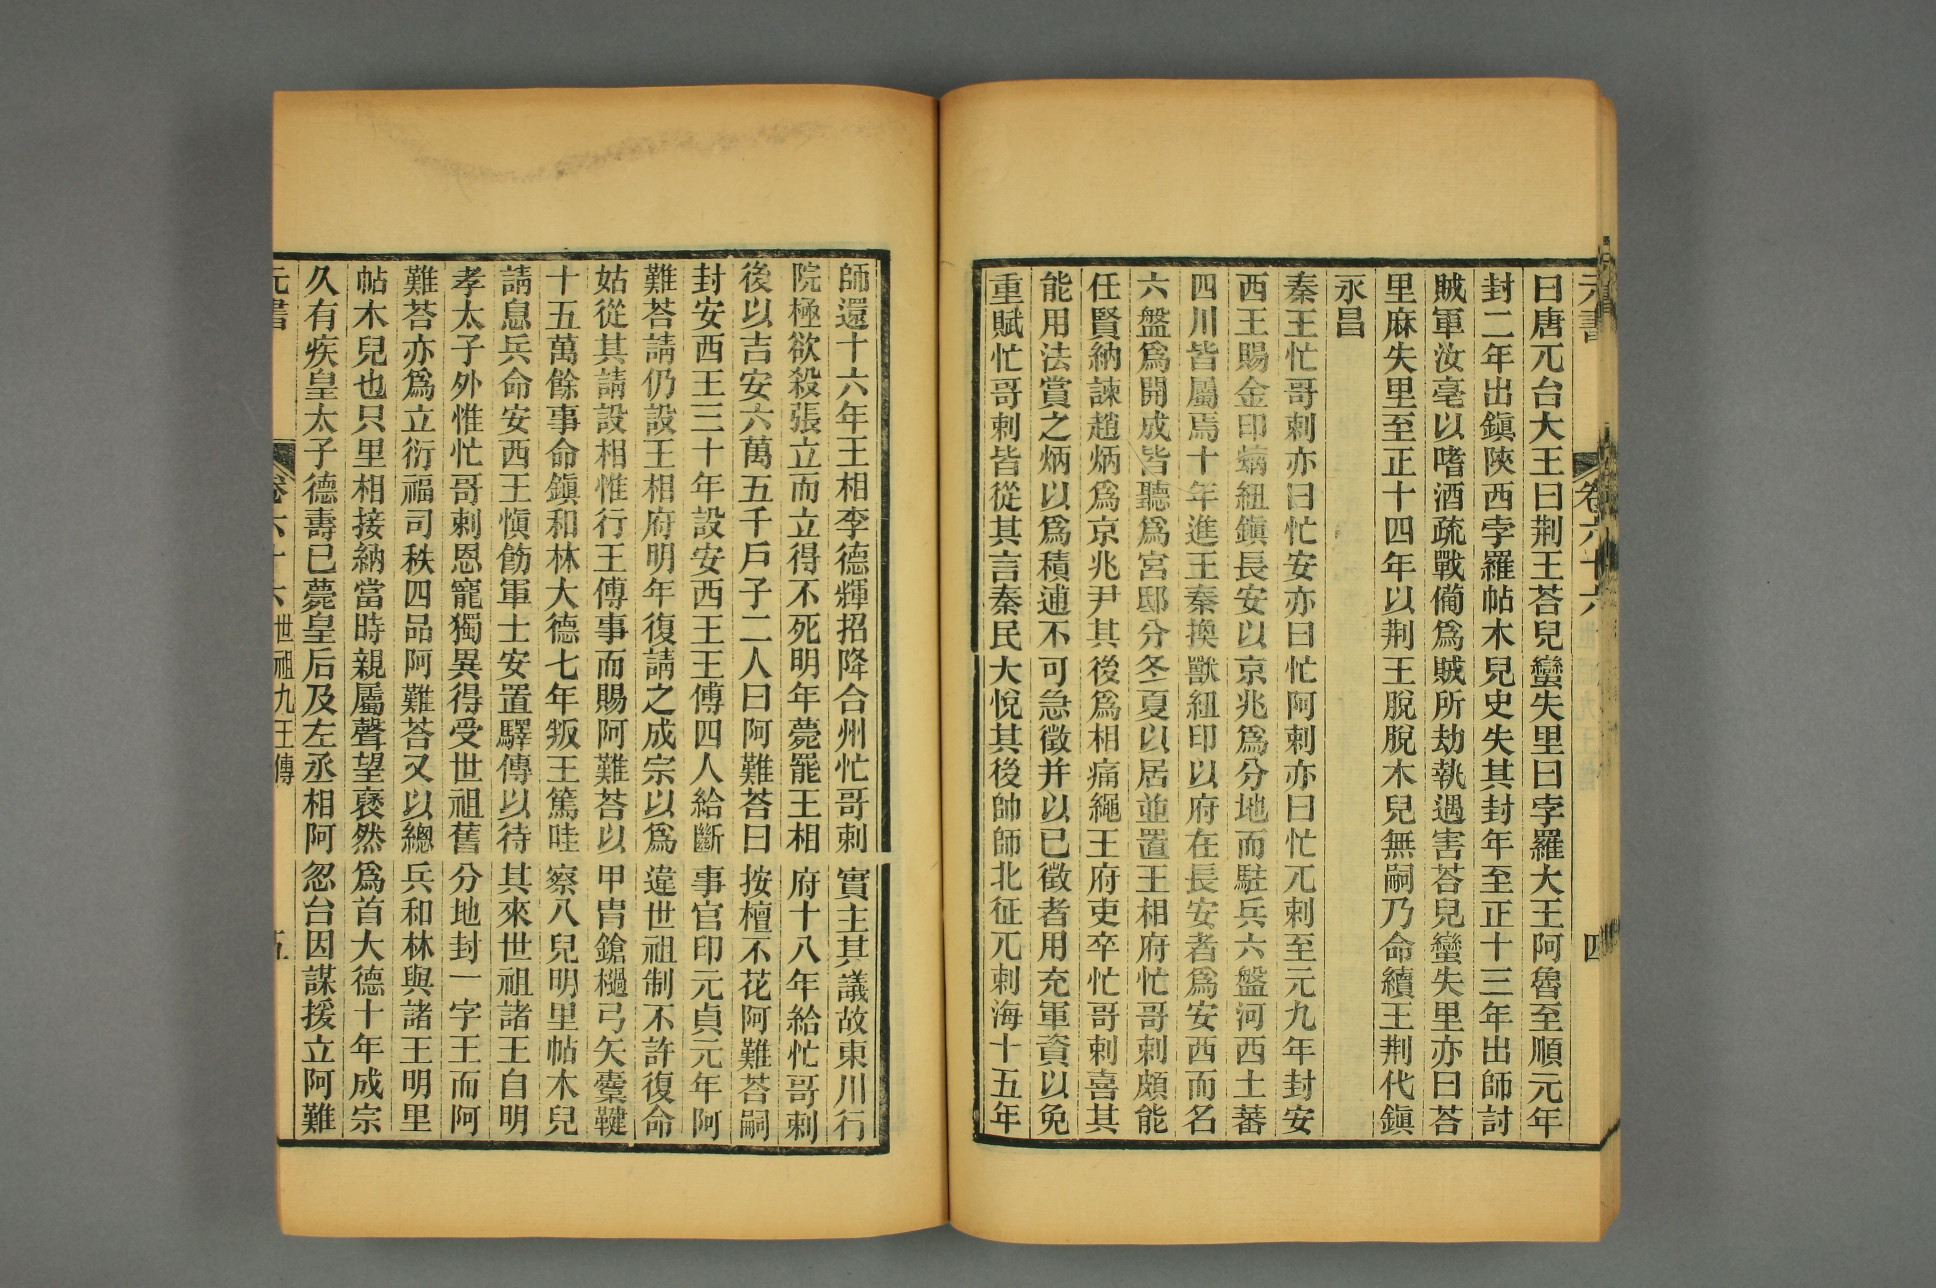 元書 卷六十六 四
曰唐兀台大王曰荆王荅兒蠻失里曰孛羅大王阿魯至順元年
封二年出鎭陝西孛羅帖木兒史失其封年至正十三年出師討
賊軍汝亳以嗜酒疏戰備爲賊所劫執遇害荅兒蠻失里亦曰荅
里麻失里至正十四年以荆王脫脫木兒無嗣乃命續王荆代鎭
永昌
秦王忙哥剌亦曰忙安亦曰忙阿剌亦曰忙兀剌至元九年封安
西王賜金印螭紐鎭長安以京兆爲分地而駐兵六盤河西土蕃
四川皆屬焉十年進王秦換獸紐印以府在長安者爲安西而名
六盤爲開成皆聽爲宮邸分冬夏以居並置王相府忙哥剌頗能
任賢納諫趙炳爲京兆尹其後爲相痛繩王府吏卒忙哥剌喜其
能用法賞之炳以爲積逋不可急徵并以已徵者用充軍資以免
重賦忙哥剌皆從其言秦民大悅其後帥師北征兀剌海十五年
師還十六年王相李德輝招降合州忙哥剌實主其議故東川行
院極欲殺張立而立得不死明年薨罷王相府十八年給忙哥剌
後以吉安六萬五千戶子二人曰阿難荅曰按檀不花阿難荅嗣
封安西王三十年設安西王王傅四人給斷事官印元貞元年阿
難荅請仍設王相府明年復請之成宗以爲違世祖制不許復命
姑從其請設相惟行王傅事而賜阿難荅以甲胄鎗檛弓矢櫜鞬
十五萬餘事命鎭和林大德七年叛王篤哇察八兒明里帖木兒
請息兵命安西王愼飭軍士安置驛傳以待其來世祖諸王自明
孝太子外惟忙哥剌恩寵獨異得受世祖舊分地封一字王而阿
難荅亦爲立衍福司秩四品阿難荅又以總兵和林與諸王明里
帖木兒也只里相接納當時親屬聲望裒然爲首大德十年成宗
久有疾皇太子德壽已薨皇后及左丞相阿忽台因謀援立阿難
元書 卷六十六 世祖九王傳 五